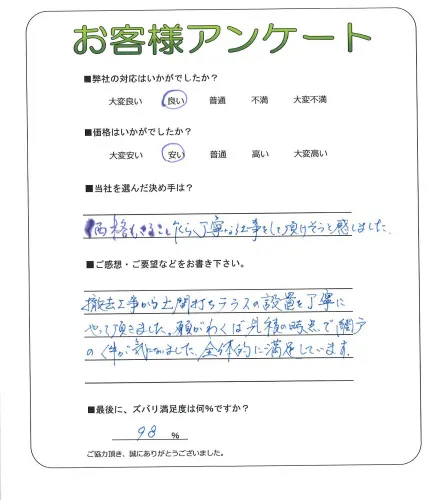 お客様アンケート
■弊社の対応はいかがでしたか？
大変良い 良い 普通 不満 大変不満
■価格はいかがでしたか？
大変安い 安い 普通 高い 大変高い
■当社を選んだ決め手は？
価格もさることながら、丁寧な仕事をして頂けそうと感じました。
■ご感想・ご要望などをお書き下さい。
撤去工事から土間打ちテラスの設置を丁寧に
やって頂きました。願がわくば見積の時点で網戸
の件が気になりました。全体的に満足しています。
■最後に、ズバリ満足度は何%ですか？
98 %
ご協力頂き、誠にありがとうございました。